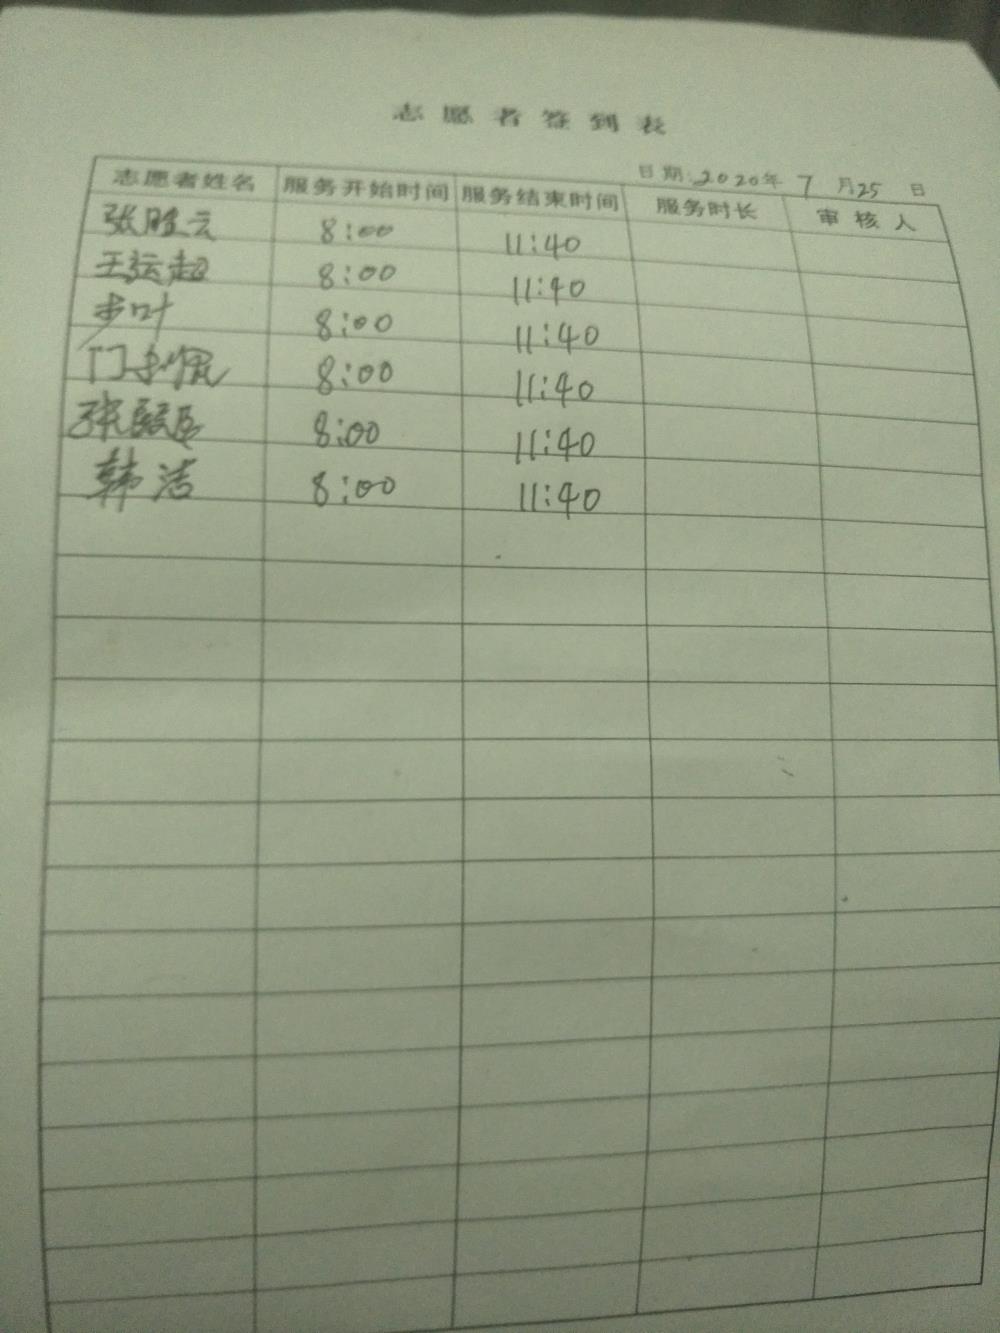 志愿者签到表
日期:2020年 7 月25 日
志愿者姓名 服务开始时间 服务结束时间 服务时长 审核人
张胜云 8:00 11:40
王运超 8:00 11:40
步叶 8:00 11:40
门 8:00 11:40
张 8:00 11:40
韩洁 8:00 11:40